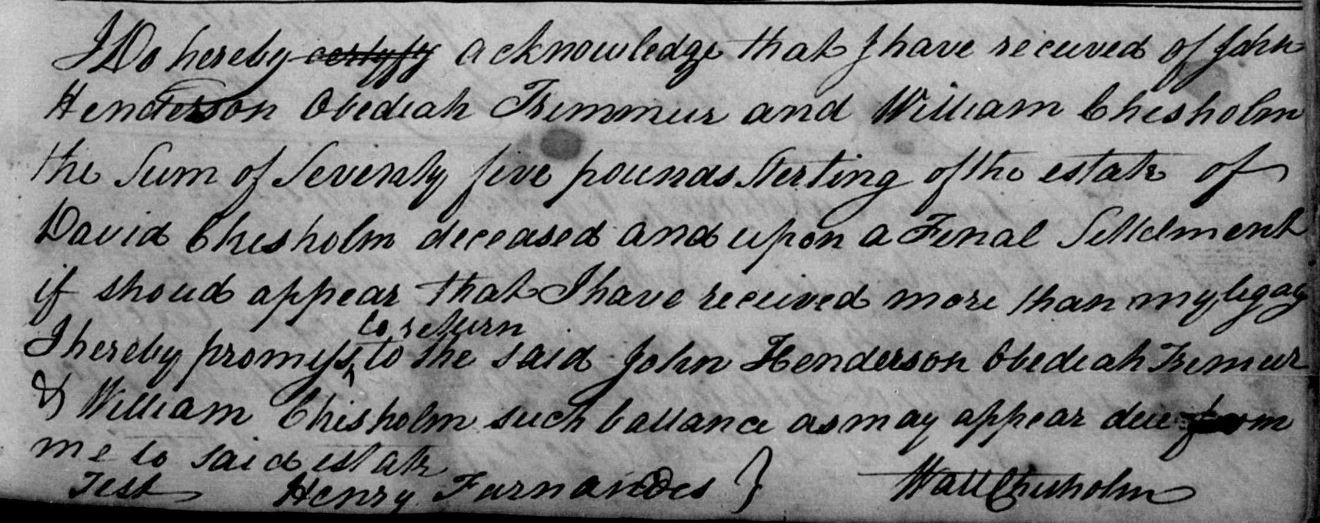 I Do hereby certyfy acknowledge that I have received of John
Henderson Obediah Trimmur and William Chisholm
the Sum of Seventy five pounds Sterling of the estate of
David Chisholm deceased and upon a Final Settelment
if shoud appear that I have received more than my legacy
to return
I hereby promiss to the said John Henderson Obediah Trimur
& William Chisholm such ballance as may appear due from
me to said estate
Test Henry Farnandes } Wall Chisholm